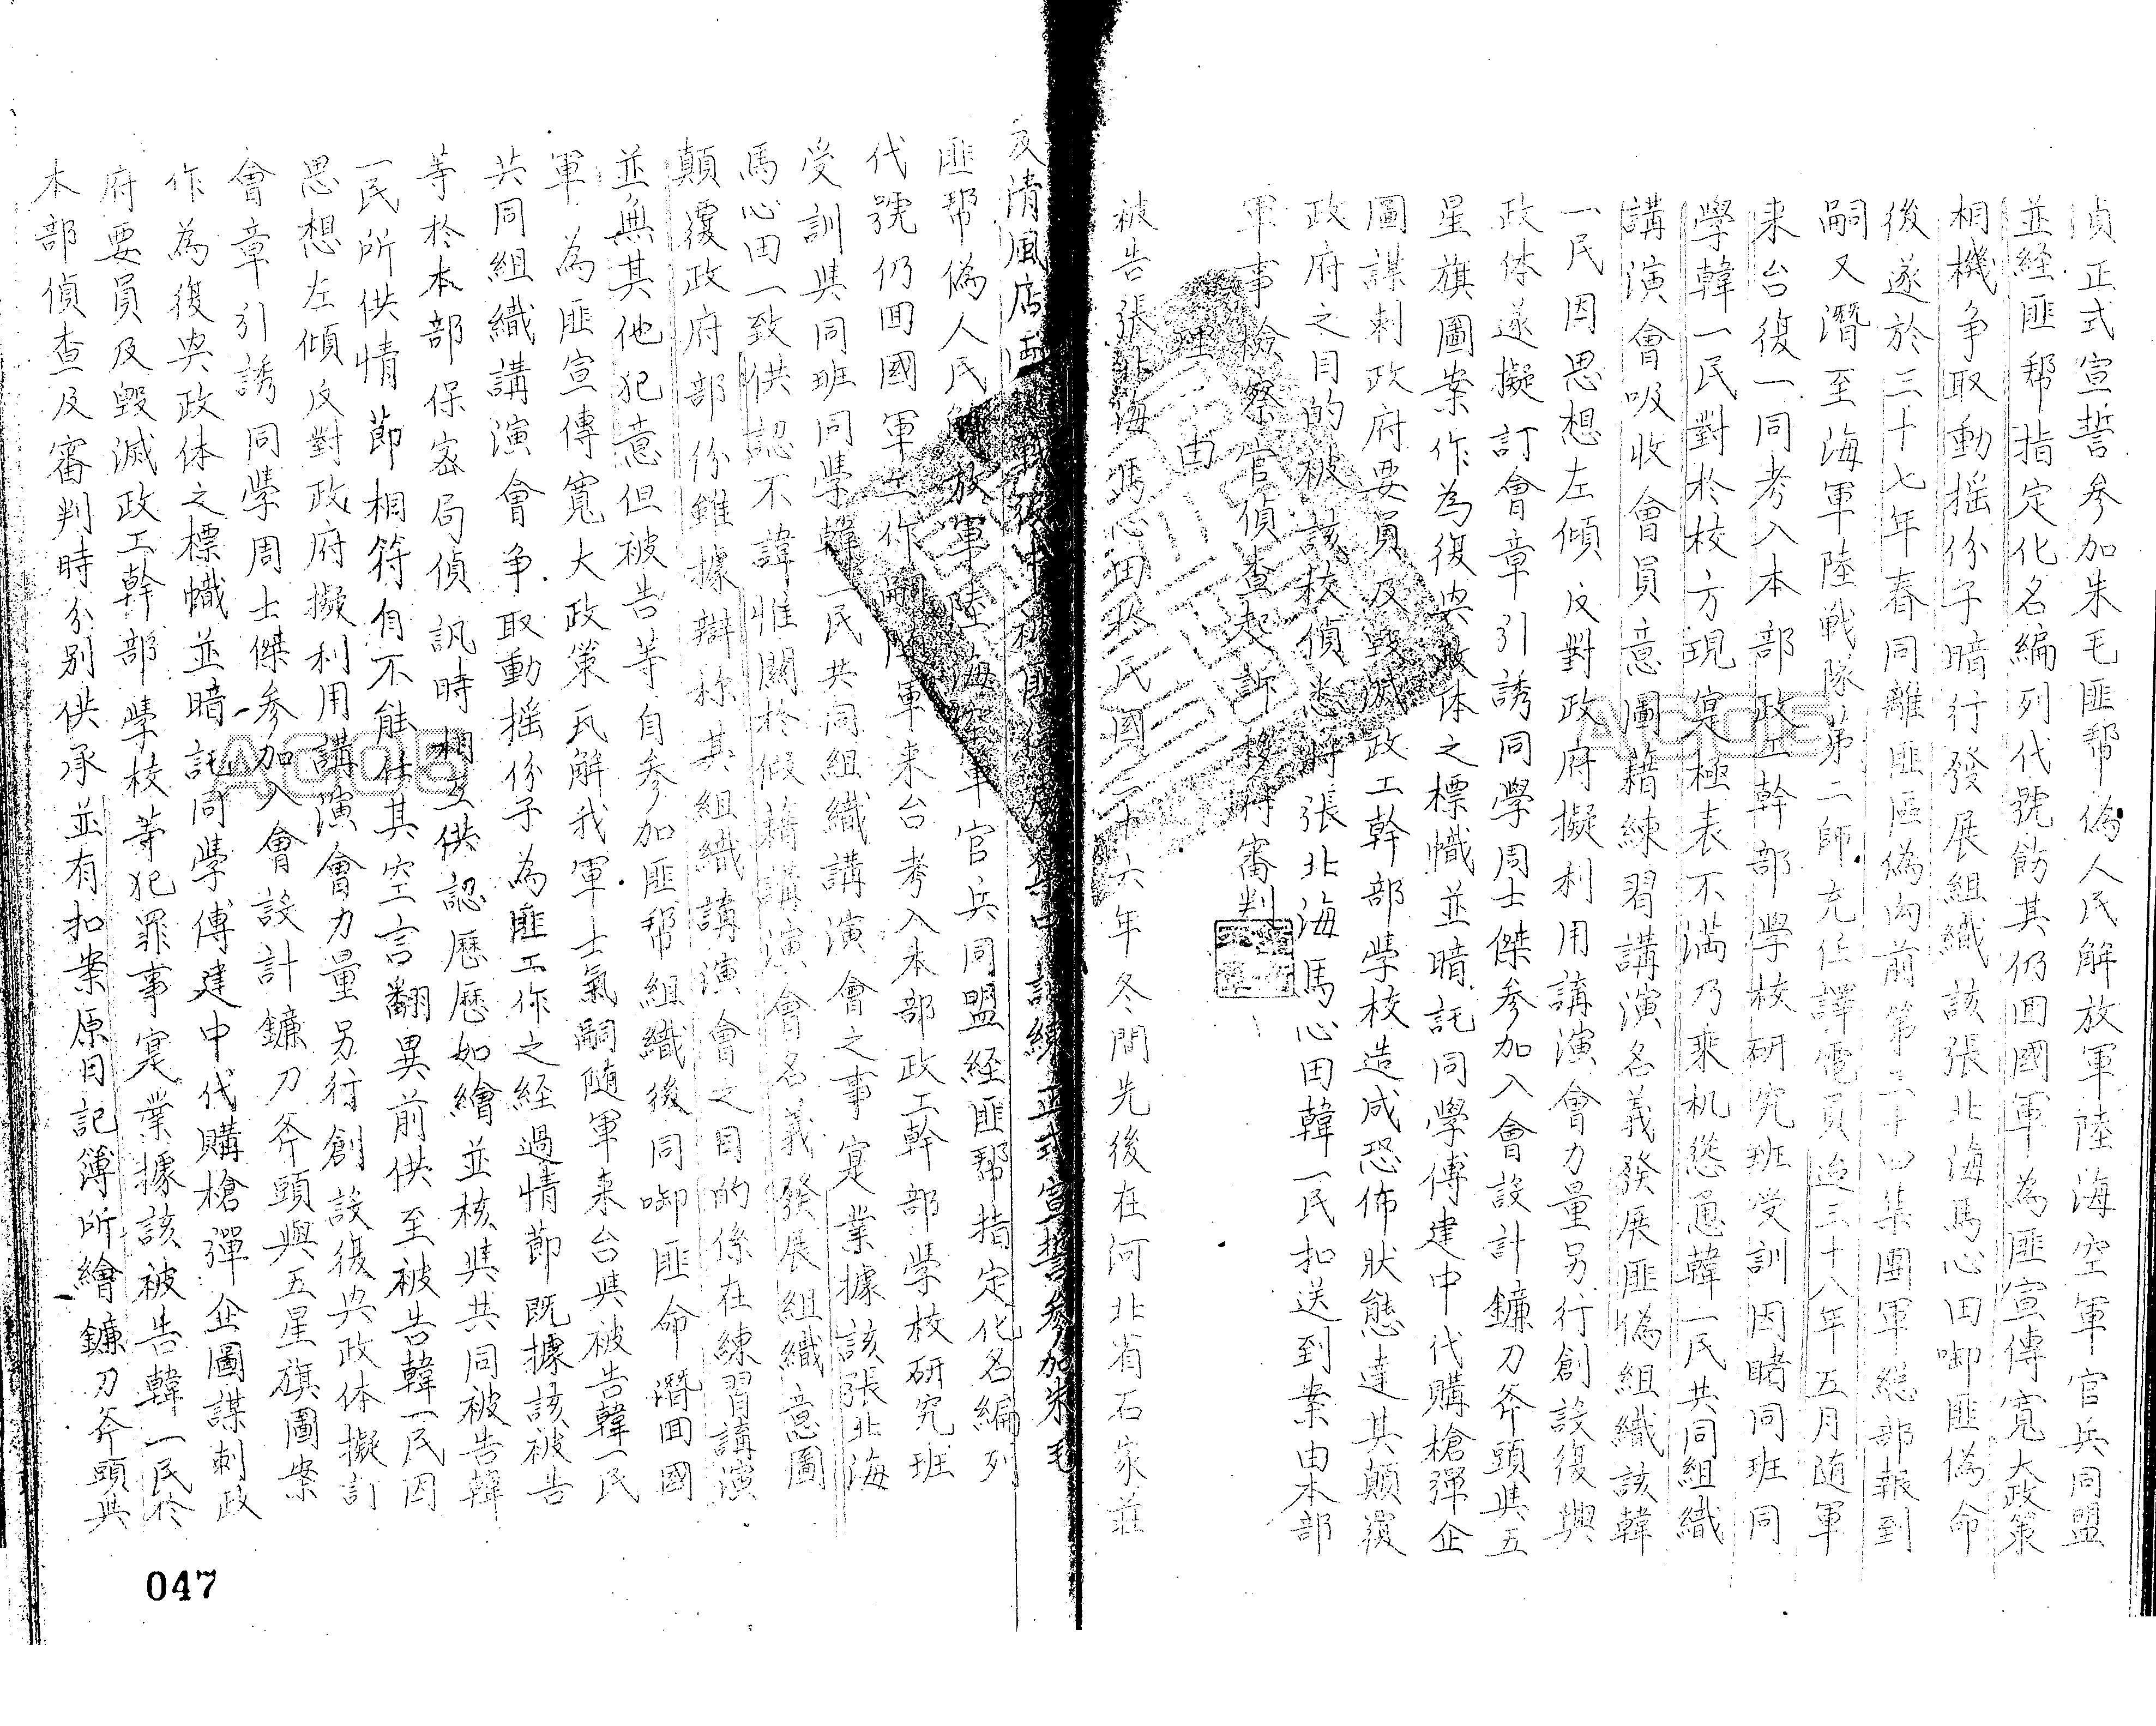 偵正式宣誓参加朱毛匪帮偽人民解放軍陸海空軍官兵同盟
並経匪帮指定化名編列代號飭其仍回國軍為匪宣傳寬大政策
相機争取動摇份子暗行發展組織該張北海馬心田啣匪偽命
後遂於三十七年春同離匪區偽向前第三十四集團軍総部報到
嗣又潛至海軍陸戦隊第二師充任譯電員迨三十八年五月随軍
来台復一同考入本部政工幹部學校研究班受訓因睹同班同
學韓一民對於校方現寔極表不满乃乘机慫恿韓一民共同組織
講演會吸收會員意圖藉練習講演名義發展匪偽組織該韓
一民因思想左傾反對政府擬利用講演會力量另行創設復興
政体遂擬訂會章引誘同學周士傑参加入會設計鐮刀斧頭與五
星旗圖案作為復兴政体之標幟並暗託同學傅建中代購槍彈企
圖謀刺政府要員及毀滅政工幹部學校造成恐佈狀態達其顛覆
政府之目的被該校偵悉將張北海馬心田韓一民扣送到案由本部
軍事檢察官偵查起訴移付審判
理由
被告張北海馬心田於民國三十六年冬間先後在河北省石家莊
及清風店 集中訓練正式宣誓参加朱毛
匪帮偽人民解放軍陸海空軍官兵同盟経匪帮指定化名編列
代號仍回國軍工作嗣随軍来台考入本部政工幹部學校研究班
受訓與同班同學韓一民共同組織講演會之事寔業據該張北海
馬心田一致供認不諱惟關於假藉講演會名義發展組織意圖
顛覆政府部份雖據辯称其組織講演會之目的係在練習講演
並無其他犯意但被告等自参加匪帮組織後同啣匪命潛回國
軍為匪宣傳寬大政策瓦解我軍士氣嗣随軍来台與被告韓一民
共同組織講演會争取動摇份子為匪工作之経過情節既據該被告
等於本部保密局偵訊時相互供認歷歷如繪並核與共同被告韓
一民所供情節相符自不能任其空言翻異前供至被告韓一民因
思想左傾反對政府擬利用講演會力量另行創設復兴政体擬訂
會章引誘同學周士傑参加入會設計鐮刀斧頭與五星旗圖案
作為復兴政体之標幟並暗託同學傅建中代購槍彈企圖謀刺政
府要員及毀滅政工幹部學校等犯罪事寔業據該被告韓一民於
本部偵查及審判時分別供承並有扣案原日記簿所繪鐮刀斧頭與
047